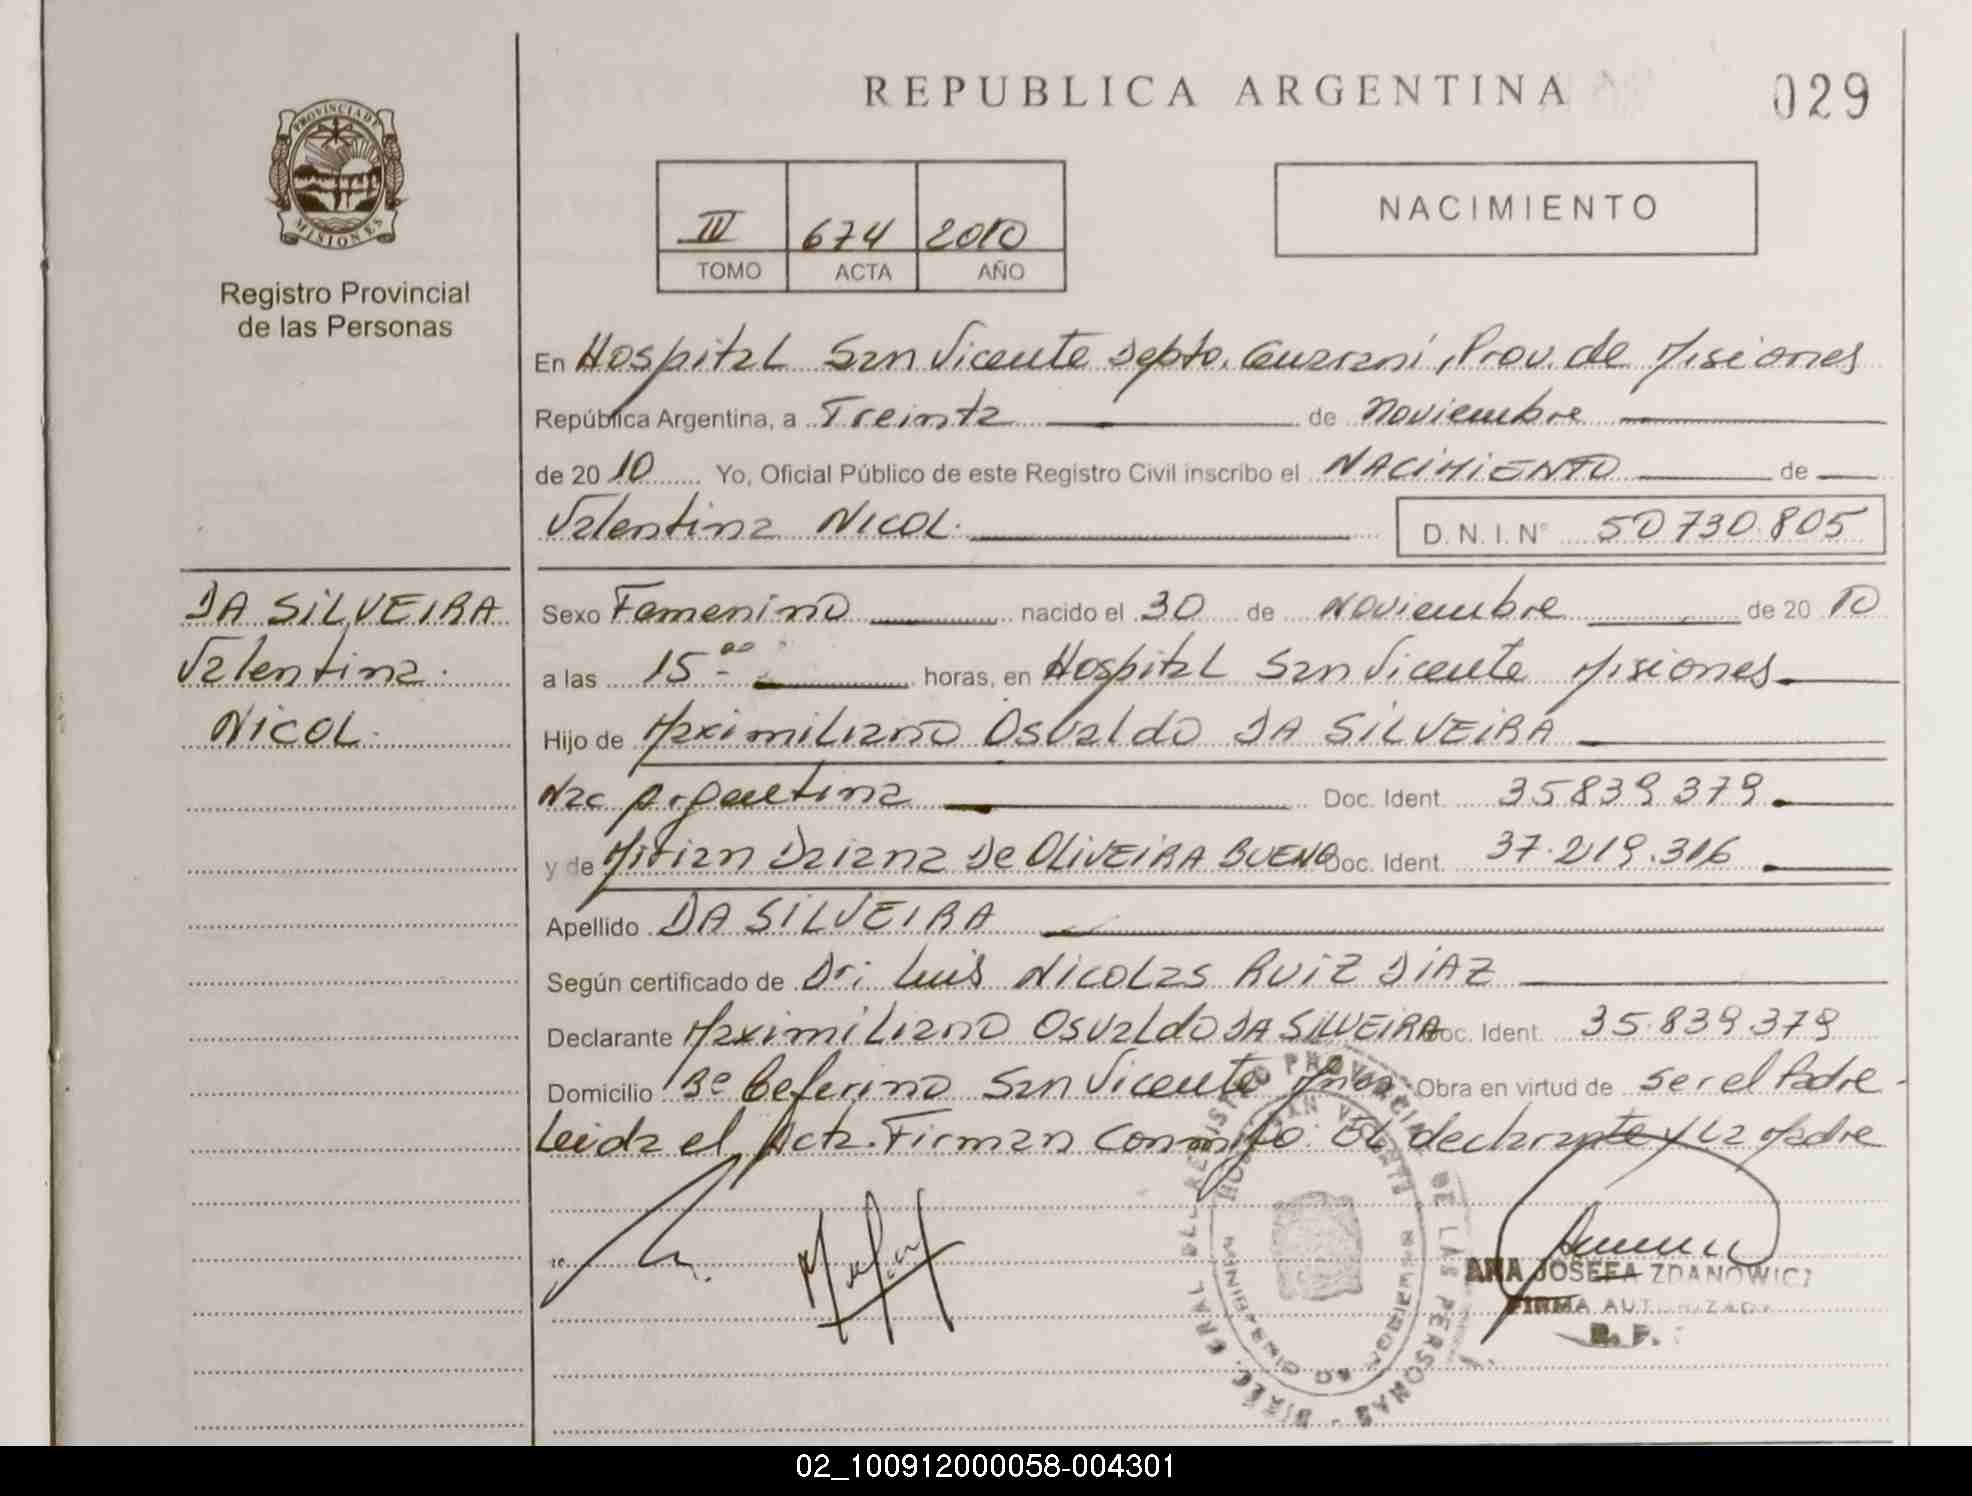 REPUBLICA ARGENTINA
029
PROVINCIA DE
MISIONES
Registro Provincial
de las Personas
IV 674 2010
TOMO ACTA AÑO
NACIMIENTO
En Hospital San Vicente Depto. Guaraní, Prov. de Misiones
República Argentina, a Treinta de Noviembre
de 20 10 Yo, Oficial Público de este Registro Civil inscribo el NACIMIENTO de
Valentina NICOL. D. N. I. N° 50730.805
DA SILVEIRA
Valentina.
NICOL.
Sexo Femenino nacido el 30 de Noviembre de 20 10
a las 15 00 horas, en Hospital San Vicente Misiones
Hijo de Maximiliano Osvaldo DA SILVEIRA
Nac Argentina Doc. Ident. 35839379
y de Mirian Daiana De OLIVEIRA BUENO Doc. Ident. 37.219.316
Apellido DA SILVEIRA
Según certificado de Dr: Luis NICOLAS RUIZ DIAZ
Declarante Maximiliano Osvaldo DA SILVEIRA Doc. Ident. 35.839.379
Domicilio Bº Ceferino San Vicente Mnes Obra en virtud de ser el Padre -
Leida el Acta. Firman Conmigo. El declarante y La Madre
REGISTRO PROVINCIAL DE LAS PERSONAS
ANA JOSEFA ZDANOWICZ
FIRMA AUTORIZADA
R. P.
02_100912000058-004301